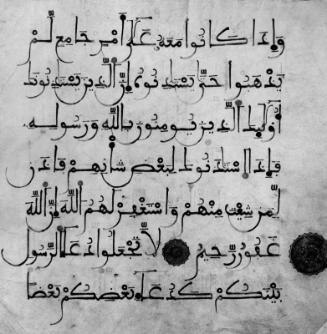 وَإِذَا كَانُوا مَعَهُ عَلَىٰ أَمْرٍ جَامِعٍ لَّمْ
يَذْهَبُوا حَتَّىٰ يَسْتَـٔذِنُوهُ إِنَّ الَّذِينَ يَسْتَـٔذِنُونَكَ
أُولَٰئِكَ الَّذِينَ يُومِنُونَ بِاللَّهِ وَرَسُولِهِ
فَإِذَا اسْتَـٔذَنُوكَ لِبَعْضِ شَأْنِهِمْ فَأْذَن
لِّمَن شِئْتَ مِنْهُمْ وَاسْتَغْفِرْ لَهُمُ اللَّهَ إِنَّ اللَّهَ
غَفُورٌ رَّحِيمٌ لَّا تَجْعَلُوا دُعَاءَ الرَّسُولِ
بَيْنَكُمْ كَدُعَاءِ بَعْضِكُم بَعْضًا